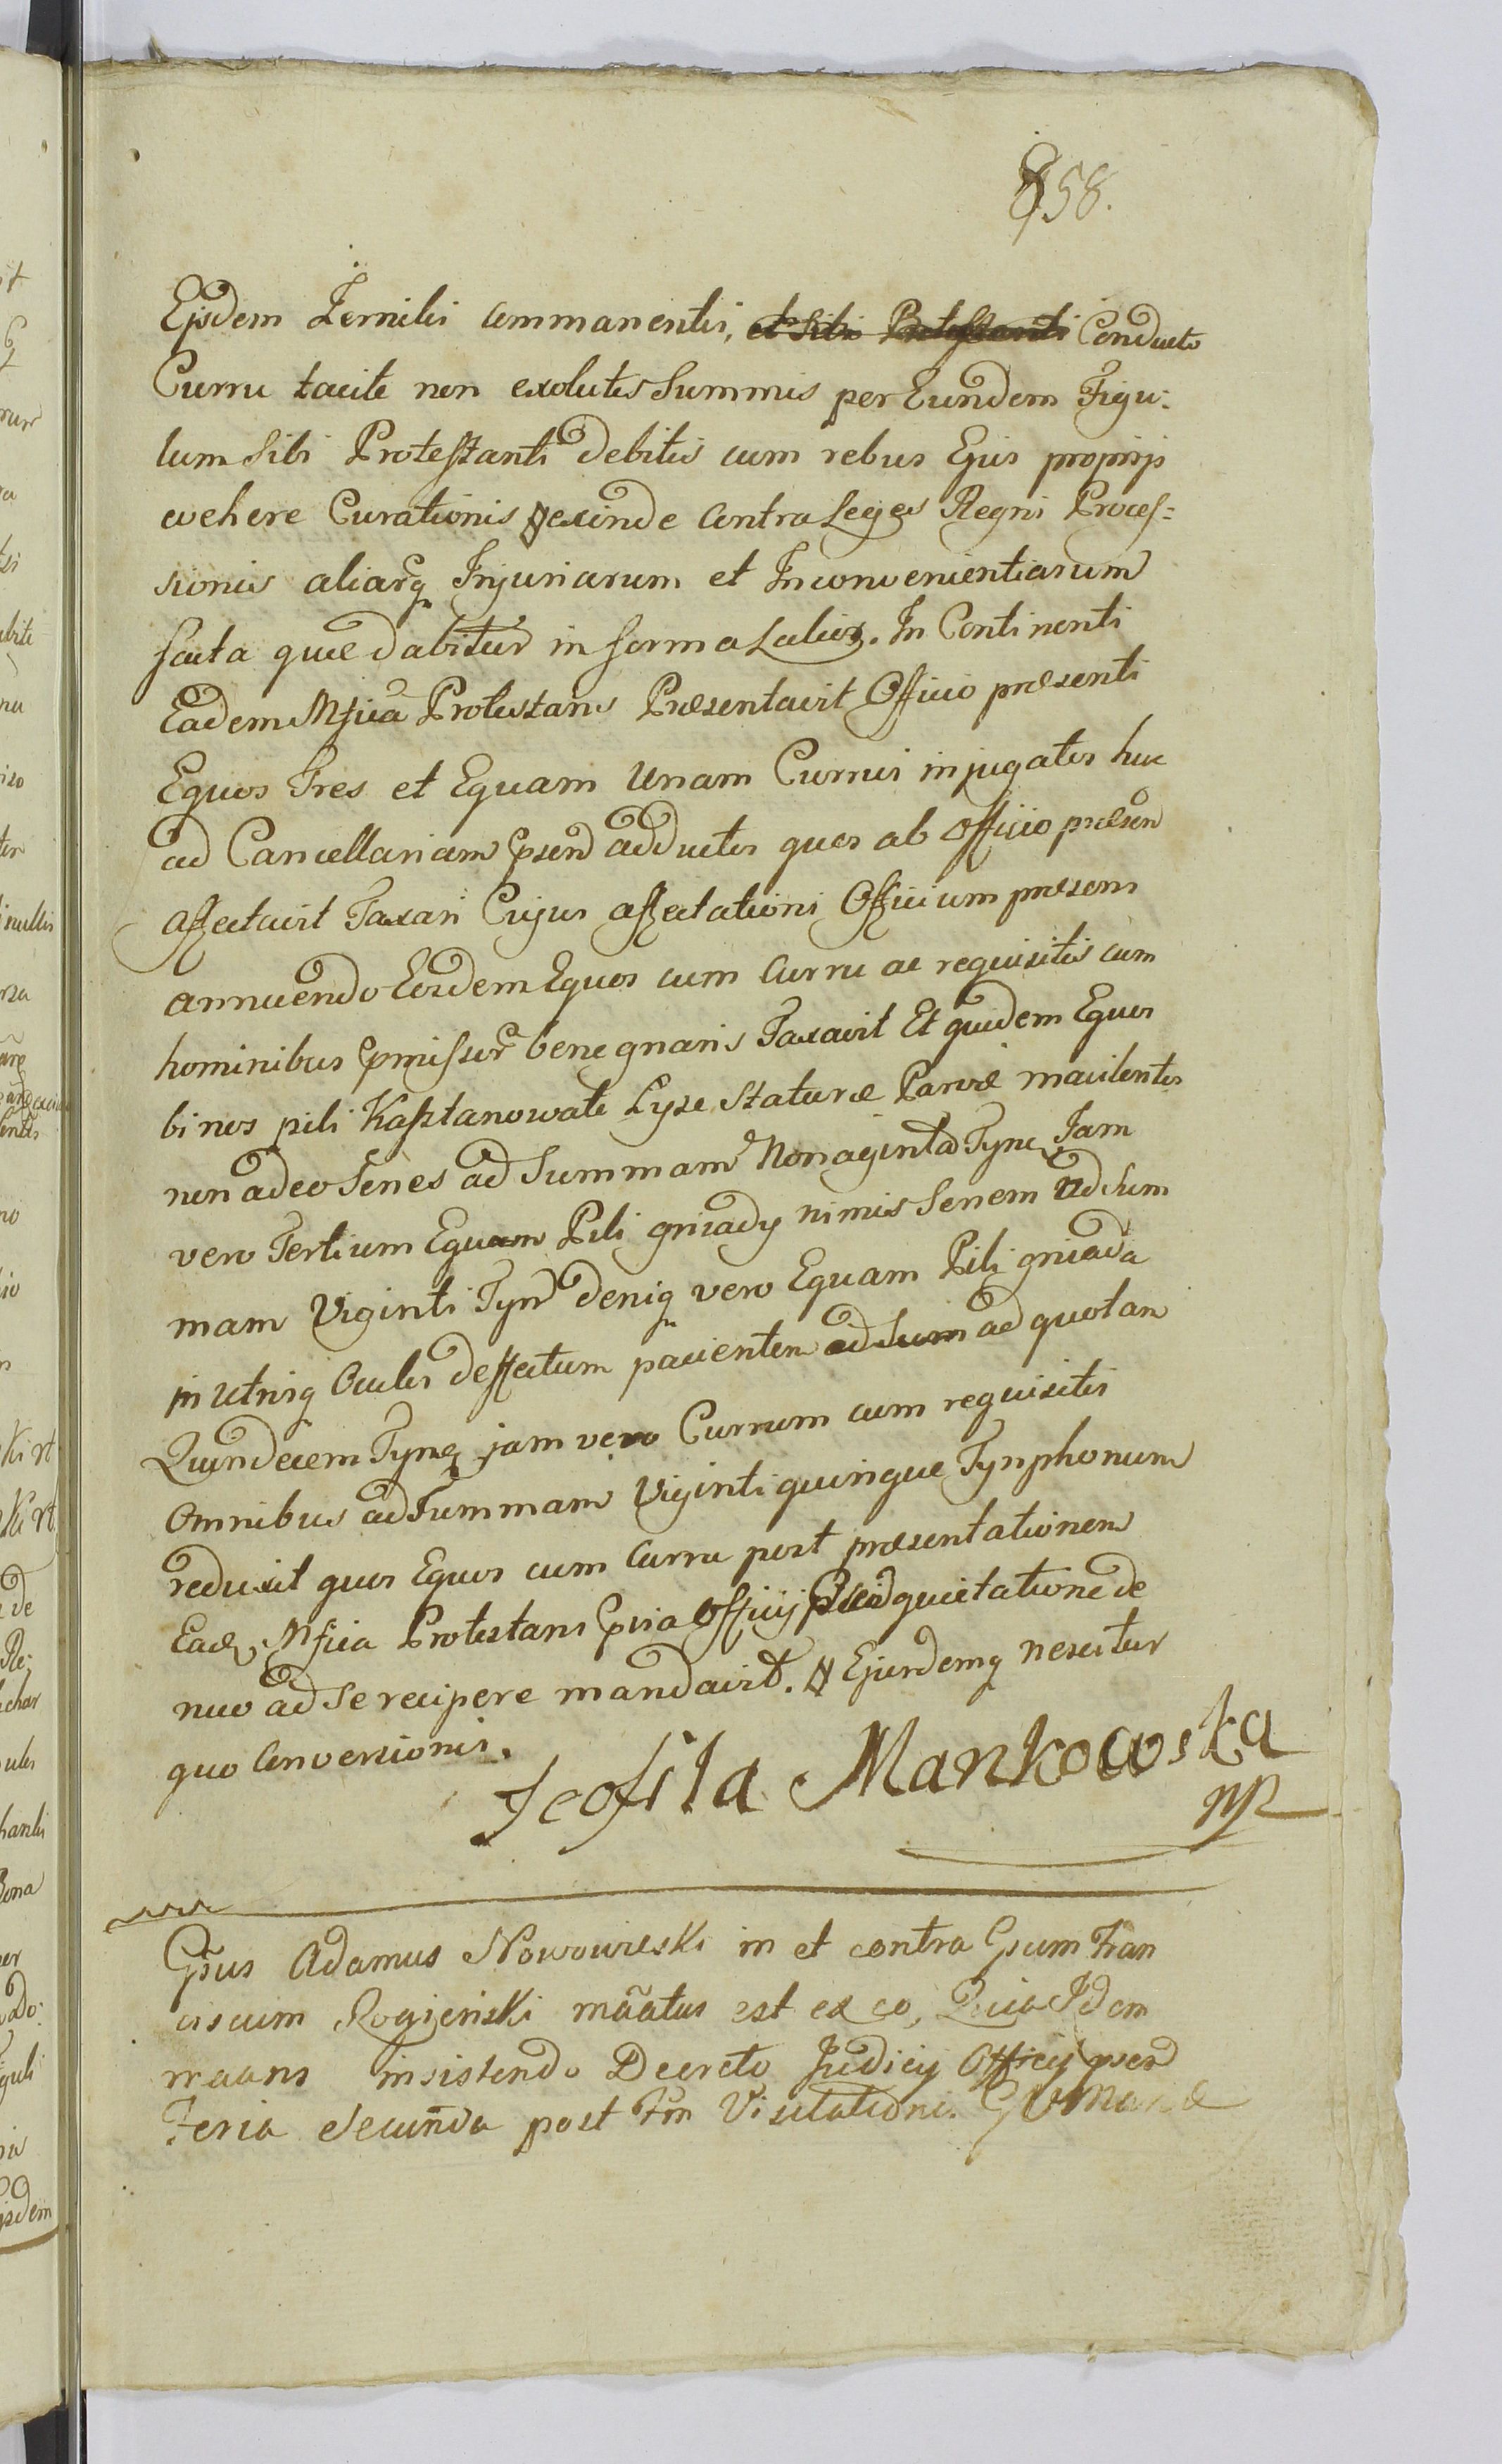 858.
Ejsdem Zemilis commanentis, et sibi Protestanti Conducto
Curru tacite non exolutis Summis per Eundem Figu:
lum Sibi Protestanti debitis cum rebus Ejus proprijs
evehere Curationis exinde contra Leges Regni Proces=
sionis aliarq Injuriarum et Inconvenientiarum
facta quæ dabitur in forma Latior. In Continenti
Eadem Mfica Protestans Præsentavit Officio præsenti
Equos Tres et Equam Unam Currui injugatos huc
ad Cancellariam Psen adductos quos ab officio præsen
affectavit Taxari Cujus affectationi Officium præsens
annuendo Eosdem Equos cum Curru ac requisitis cum
hominibus pmissor bene gnaris Taxavit Et quidem Equos
binos pili Kasztanowate Lyse Staturæ Parvæ macilentos
non adeo Senes ad Summam Nonaginta Tyn Jam
vero Tertium Equum Pili gniady nimis Senem ad Sum
mam Viginti Tyn deniq vero Equam Pili gniada
in utrisq Oculis deffectum pacientem ad Sum ad quotam
Quindecem Tynq jam vero Currum cum requisitis
Omnibus ad Summam Viginti quinque Tynphonum
reduxit quos Equos cum Curru post præsentationem
Ead Mfica Protestans pvia Officij quietatione de
nuo ad Se recipere mandavit. Ejusdemq nescitur
quo Conversionis.
Teofila Mankowska
mp
Gsus Adamus Nowowieski in et contra Gsum Fran
ciscum Rogienski mãatus est ex eo, Quia Idem
maans insistendo Decreto Judicij Officij psen
Feria Secunda post Fm Visitationis